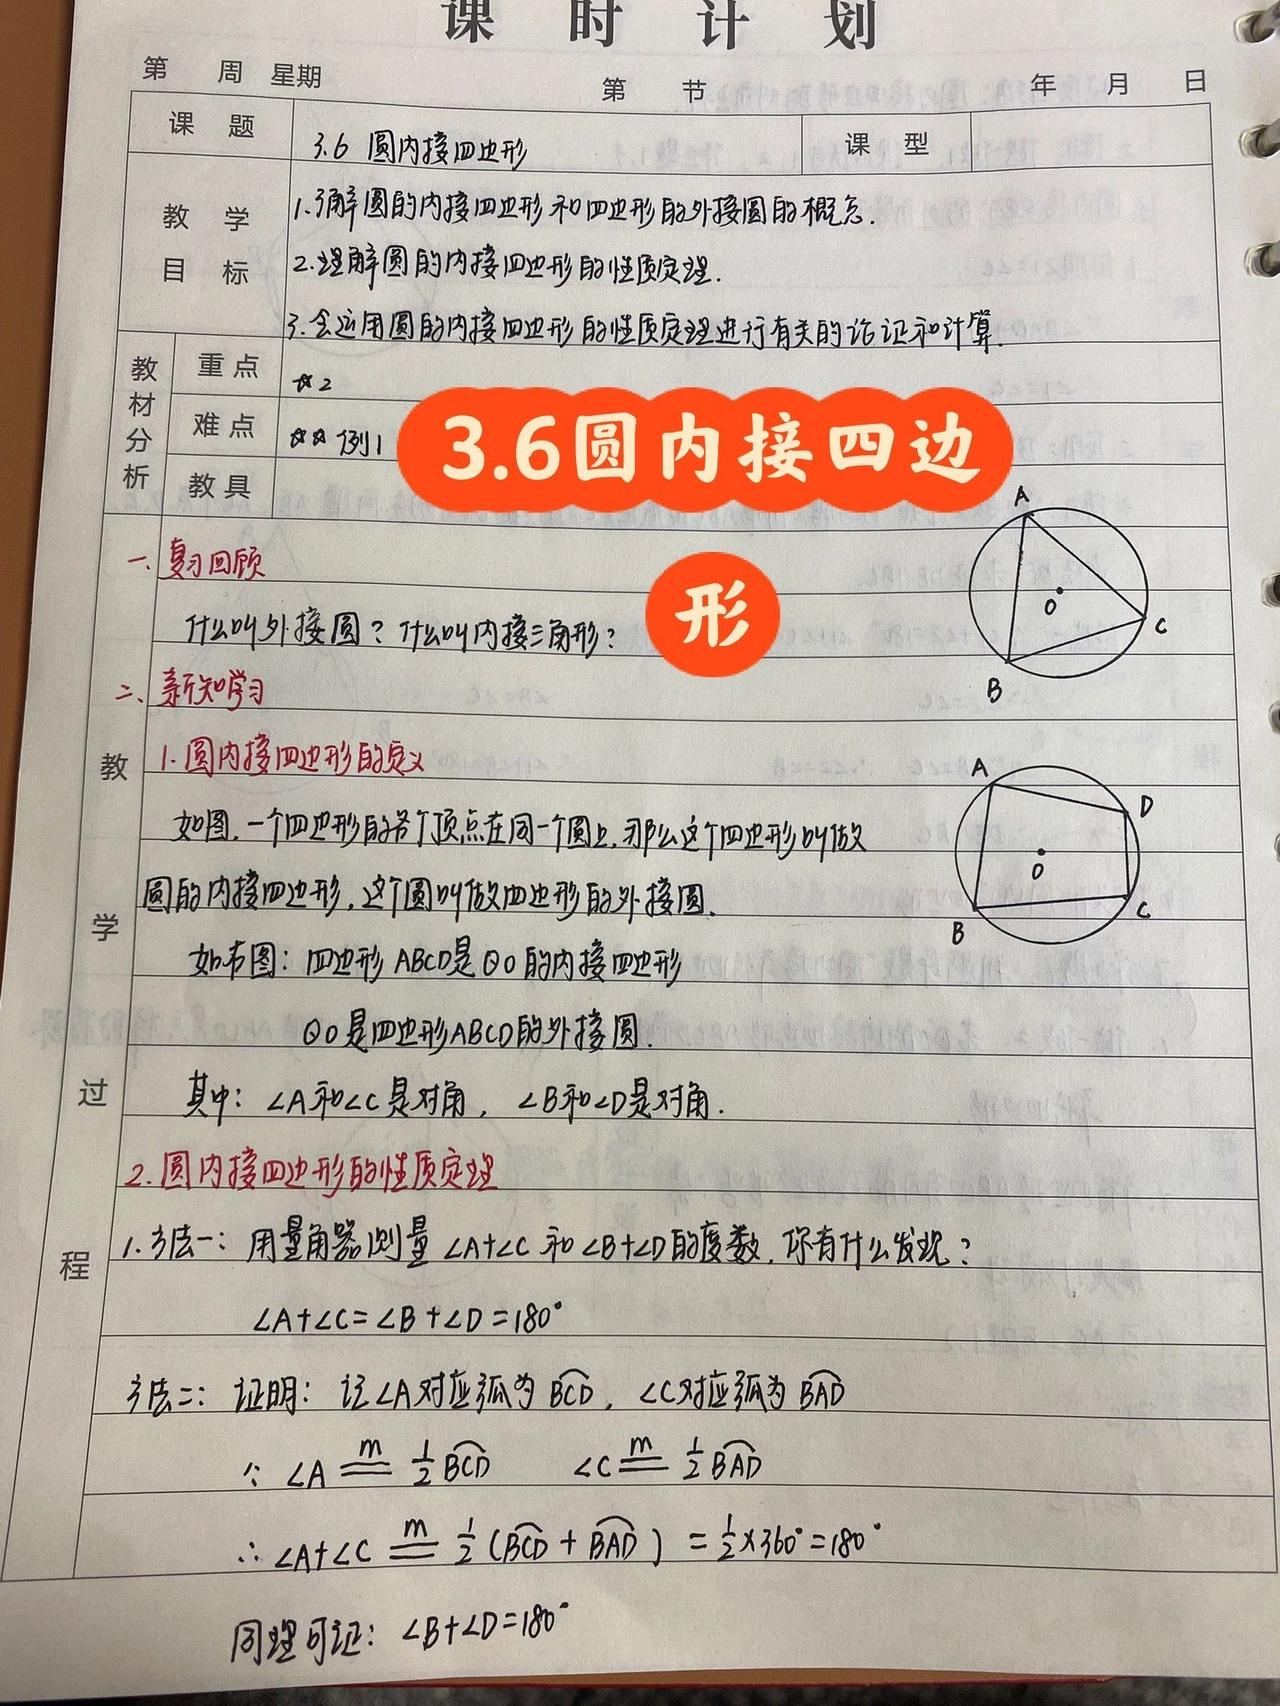 课时计划
第 周 星期 第 节 年 月 日
课题 3.6 圆内接四边形 课型
教学目标 1.了解圆的内接四边形和四边形的外接圆的概念.
2.理解圆的内接四边形的性质定理.
3.会运用圆的内接四边形的性质定理进行有关的论证和计算.
教材分析
重点 ☆2
难点 ☆☆ 例1
教具
3.6圆内接四边
形
教学过程
一、复习回顾
什么叫外接圆?什么叫内接三角形?
A
O
B
C
二、新知学习
1.圆内接四边形的定义
如图,一个四边形的各个顶点在同一个圆上,那么这个四边形叫做
圆的内接四边形,这个圆叫做四边形的外接圆.
A
D
O
B
C
如右图:四边形ABCD是⊙O的内接四边形
⊙O是四边形ABCD的外接圆.
其中:∠A和∠C是对角,∠B和∠D是对角.
2.圆内接四边形的性质定理
1.方法一:用量角器测量∠A+∠C和∠B+∠D的度数,你有什么发现?
∠A+∠C=∠B+∠D=180°
方法二:证明:记∠A对应弧为⌒BCD,∠C对应弧为⌒BAD
∵ ∠A =m= 1/2 ⌒BCD ∠C =m= 1/2 ⌒BAD
∴ ∠A+∠C =m= 1/2 (⌒BCD + ⌒BAD) = 1/2×360°=180°
同理可证:∠B+∠D=180°